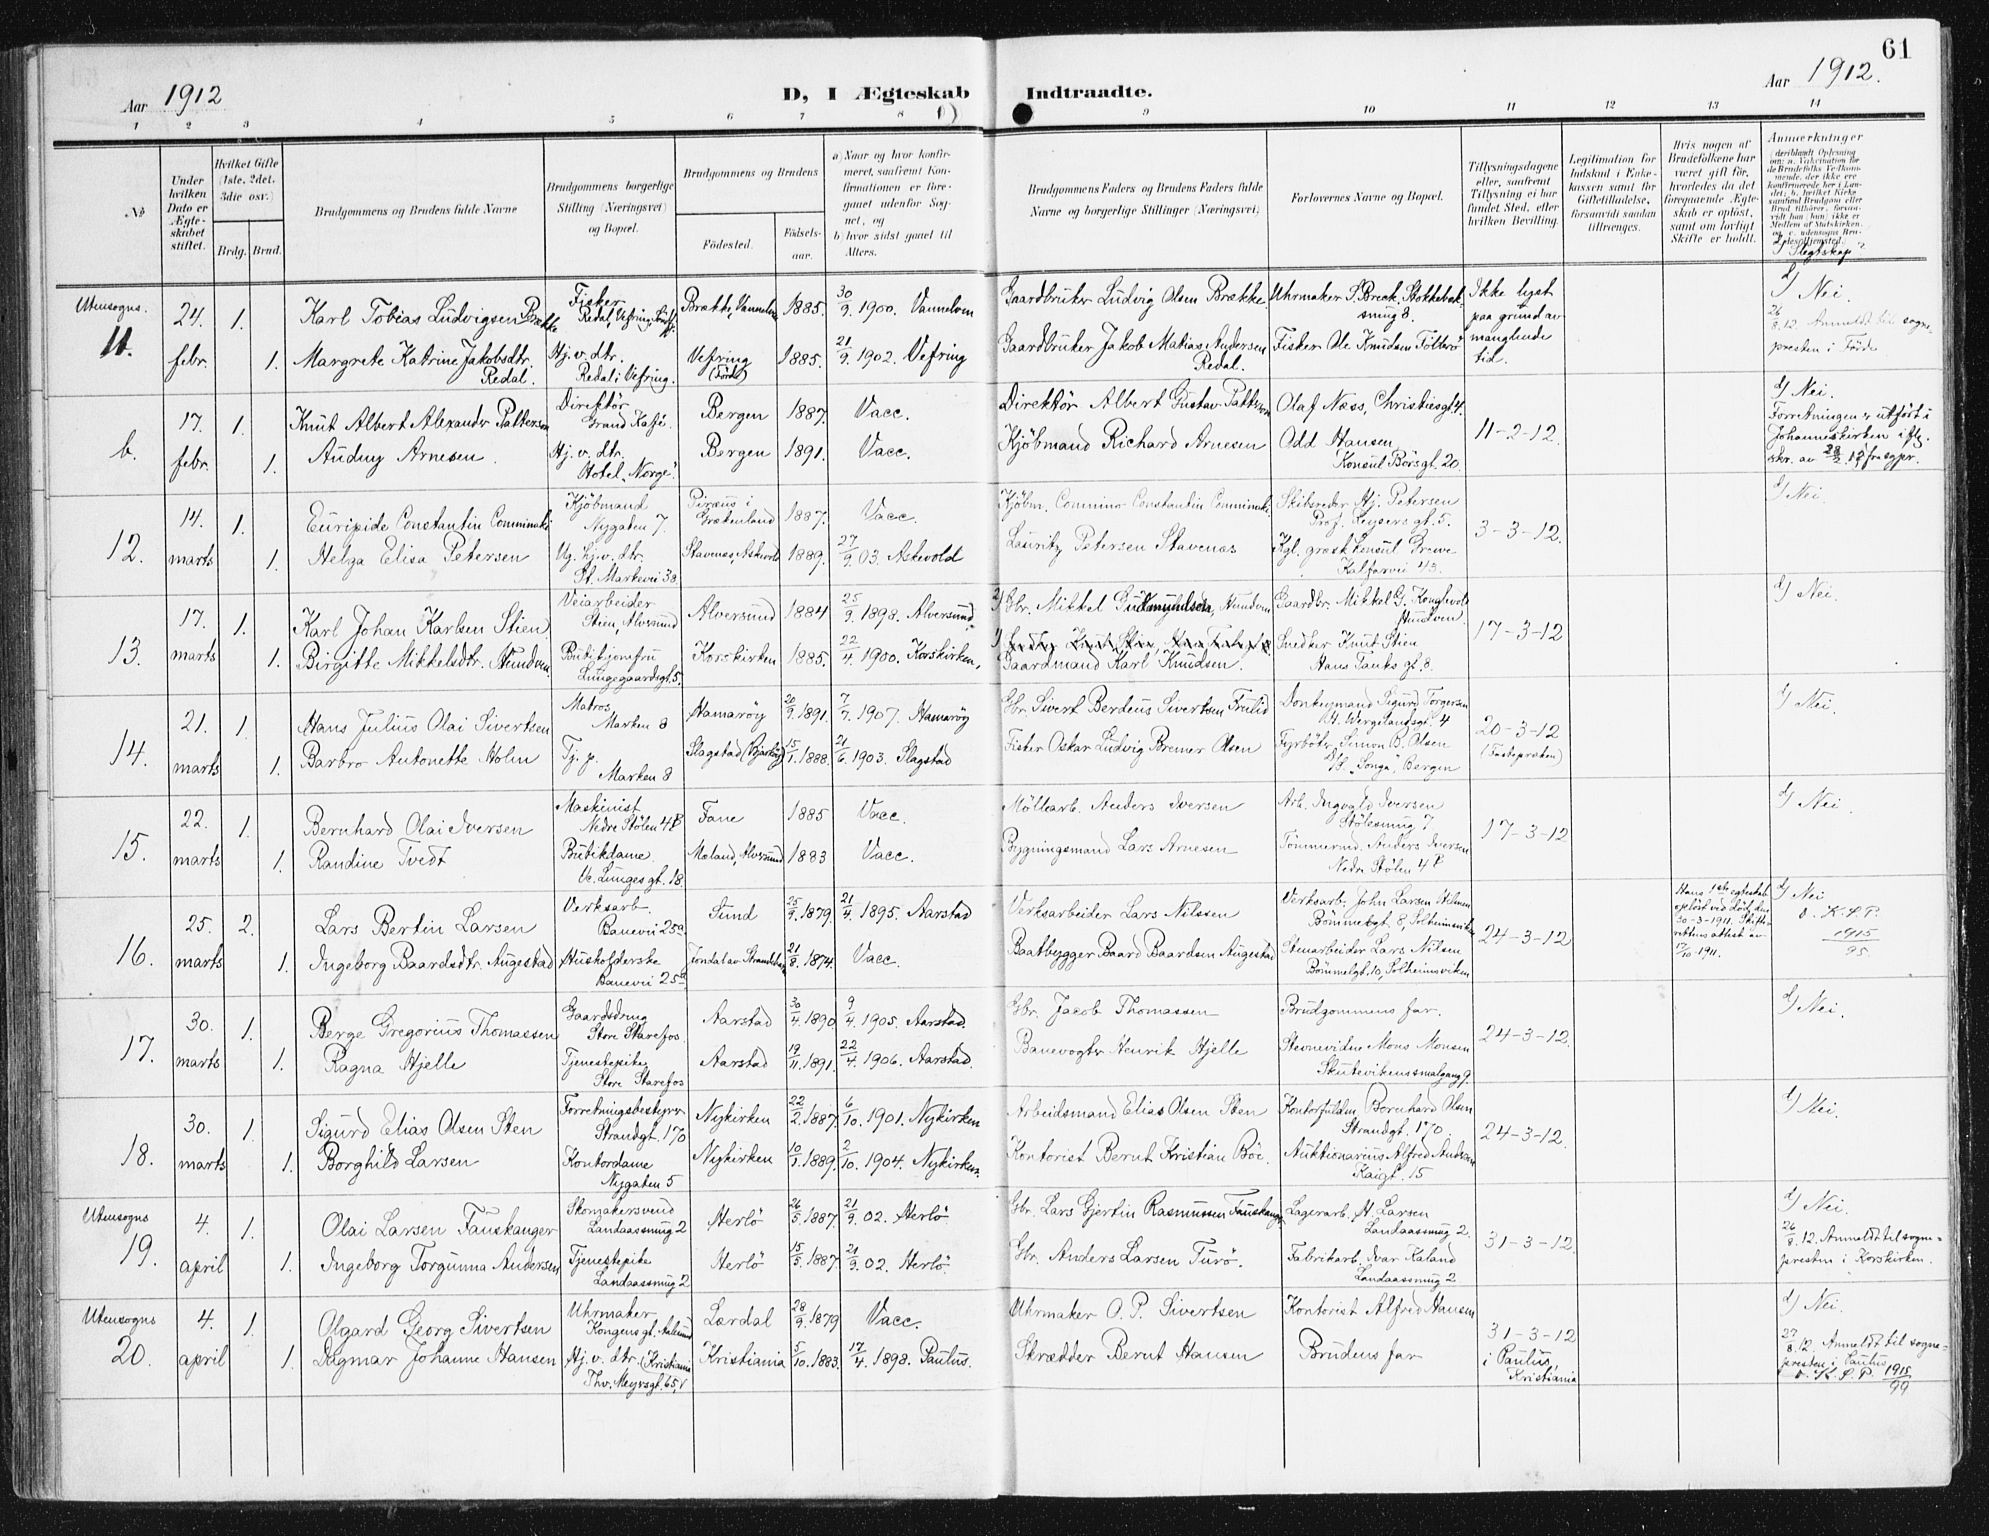 61
Aar 1912
D, I Ægteskab Indtraadte.
Aar 1912.
1 2 3 4 5 6 7 8 9 10 11 12 13 14
No
Under hvilken Dato er Ægteskabet stiftet.
Hvilket Gifte (1ste, 2det, 3die osv.)
Brdg. Brud.
Brudgommens og Brudens fulde Navne
Brudgommens borgerlige Stilling (Næringsvei) og Bopæl.
Brudgommens og Brudens
Fødested.
Fødselsaar.
a) Naar og hvor konfirmeret, saafremt Konfirmationen er foregaaet udenfor Sognet, og
b) hvor sidst gaaet til Alters.
Brudgommens Faders og Brudens Faders fulde Navne og borgerlige Stillinger (Næringsvei)
Forlovernes Navne og Bopæl.
Tillysningsdagene eller, saafremt Tillysning ei har fundet Sted, efter hvilken Bevilling.
Legitimation for Indskud i Enkekassen samt for Giftetilladelse, forsaavidt saadan tiltrænges.
Hvis nogen af Brudefolkene har været gift før, hvorledes da det foregaaende Ægteskab er opløst, samt om lovligt Skifte er holdt.
Anmerkninger
d/ Slegtskap?
Utensogns.
11.
24. febr.
1. Karl Tobias Ludvigsen Brække
Fisker
Brække, Vannelven 1885. 30/9 1900. Vannelven
Gaardbruker Ludvig Olsen Brække
Uhrmaker S. Bræk, Stokkebaksmug 8.
Ikke lyst paa grund av manglende tid.
d/ Nei.
26/8.12. Anmeldt til sognepresten i Førde
1. Margrete Katrine Jakobsdtr. Redal.
Hj. v. dtr. Redal i Vefring.
Vefring (Førde) 1885. 21/9 1902. Vefring
Gaardbruker Jakob Matias Andersen Redal.
Fisker Ole Knudsen
b.
17. febr.
1. Knut Albert Alexander Pattersen
Direktør Grand Kafé.
Bergen 1887. Vacc.
Direktør Albert Gustav Pattersen
Olaf Næss, Christiesgt. 4.
11-2-12.
d/ Nei.
Forretningen er utført i Johanneskirken ifig. skr. av
1. Audny Arnesen.
Hj. v. dtr. Hotel „Norge".
Bergen 1891. Vacc.
Kjøbmand Richard Arnesen
Odd Hansen, Konsul Børsgt. 20.
12.
14. marts
1. Euripide Constantin Comminaki
Kjøbmand Nygaten 7.
Piræus i Grækenland 1887. Vacc.
Kjøbm. Comnino Constantin Comminaki.
Skibsreder Hj. Petersen Prof. Keysers gt. 5.
3-3-12.
d/ Nei.
1. Helga Elisa Petersen
Ug. hj. v. dtr. St. Markevei 38
Stavenæs, Askvold 1889. 27/9 03. Askvold
Lauritz Petersen Stavenæs
Kgl. græsk konsul Grewe Kalfarvei 43.
13.
17. marts
1. Karl Johan Karlsen Stien
Veiarbeider Stien, Alversund
Alversund 1884 25/9 1898. Alversund.
2/ Gbr. Mikkel Gudmundsen, Hundven
Gaardbr. Mikkel G. Hundven
17-3-12
d/ Nei.
1. Birgitte Mikkelsdtr. Hundven.
Butikjomfru Lungegaardsgt. 5.
Korskirken 1885. 22/4 1900. Korskirken.
1/ Gaardmand Karl Knudsen.
Snedker Knut Stien Hans Tanks gt. 8.
14.
21. marts
1. Hans Julius Olai Sivertsen
Matros, Marken 8
Hamarøy 20/9 1891. 7/7 1907. Hamarøy
Gbr. Sivert Berdeus Sivertsen Frulid
Donkeymand Sigurd Torgersen H. Wergelandsgt. 4
20-3-12
d/ Nei.
1. Barbro Antonette Holm
Tj. p. Marken 8
Slagstad (Bjarkøy) 15/1 1888. 21/6 1903. Slagstad
Fisker Oskar Ludvig Bremer Olsen
Fyrbøter Simon B. Olsen D/S. „Songa", Bergen
15.
22. marts
1. Bernhard Olai Iversen
Maskinist Nedre Stølen 4B
Fane 1885 Vacc.
Møllearb. Anders Iversen
Arb. Ingvald Iversen Stølesmug 7
17-3-12
d/ Nei.
1. Randine Tvedt
Butikdame. Ve. Lunges gt. 18.
Mæland, Alversund 1883 Vacc.
Bygningsmand Lars Arnesen
Tømmermd. Anders Iversen Nedre Stølen 4B
16.
25. marts
2. Lars Bertin Larsen
Verksarb. Banevei 25a
Sund 25/9 1879. 21/4 1895. Aarstad
Verksarbeider Lars Nilssen
Verksarb. John Larsen Bømmelsgt 8, Solheimsviken
24-3-12
Hans 1ste egteskab opløst ved død, den 30-3-1911. Skifterettens attest av 17/10-1911.
d/ Nei
o. K. S. P. 1915/95.
1. Ingeborg Baardsdtr. Augestad
Husholderske Banevei 25a
21/8 1874. Vacc.
Baatbygger Baard Baardsen Augestad
Stenarbeider Lars Nilsen Bømmelgt. 10, Solheimsviken
17.
30. marts
1. Berge Gregorius Thomassen
Gaardsdreng Store Starefos
Aarstad 30/4 1890. 9/4 1905. Aarstad.
Gbr. Jacob Thomassen
Brudgommens far.
24-3-12.
d/ Nei.
1. Ragna Hjelle
Tjenestepike Store Starefos
Aarstad 19/11 1891. 22/4 1906. Aarstad.
Banevogter Henrik Hjelle
Stevnevidne Mons Monsen Skutevikenssmalgang 9.
18.
30. marts
1. Sigurd Elias Olsen Sten
Forretningsbestyrer Strandgt. 170
Nykirken 22/2 1887. 6/10 1901. Nykirken
Arbeidsmand Elias Olsen Sten
Kontorfuldm. Bernhard Olsen Strandgt. 170.
24-3-12.
d/ Nei.
1. Borghild Larsen
Kontordame Nygaten 5
Nykirken 10/1 1889. 2/10 1904. Nykirken.
Kontorist Bernt Kristian Bøe.
Auktionarius Alfred Andersen Kaigt. 15
Utensogns
19.
4. april
1. Olai Larsen Fauskanger
Skomakersvend Landaassmug 2
Herlø 26/5 1887. 21/9 02. Herlø
Gbr. Lars Gjertin Rasmussen Fauskanger
Lagerarb. H. Larsen Landaassmug 2.
31-3-12.
d/ Nei.
26/8.12. Anmeldt til sognepresten i Korskirken.
1. Ingeborg Torgunna Andersen
Tjenestepike Landaassmug 2
Herlø 15/5 1887. 21/9 02. Herlø.
Gbr. Anders Larsen Turø.
Fabrikarb. Ivar Kaland Landaassmug 2
Utensogns
20.
4. april
1. Olgard Georg Sivertsen
Uhrmaker Kongensgt. Aalesund
Lærdal 28/9 1879 Vacc.
Uhrmaker O. P. Sivertsen
Kontorist Alfred Hansen
31-3-12 i Paulus, Kristiania
d/ Nei.
27/8.12. Anmeldt til sognepresten i Paulus
o. K. S. P. 1915/99
1. Dagmar Johanne Hansen
Hj. v. dtr. (Kristiania Thv. Meyersgt. 65, V
Kristiania 5/10 1883. 17/4 1898. Paulus.
Skrædder Bernt Hansen
Brudens far